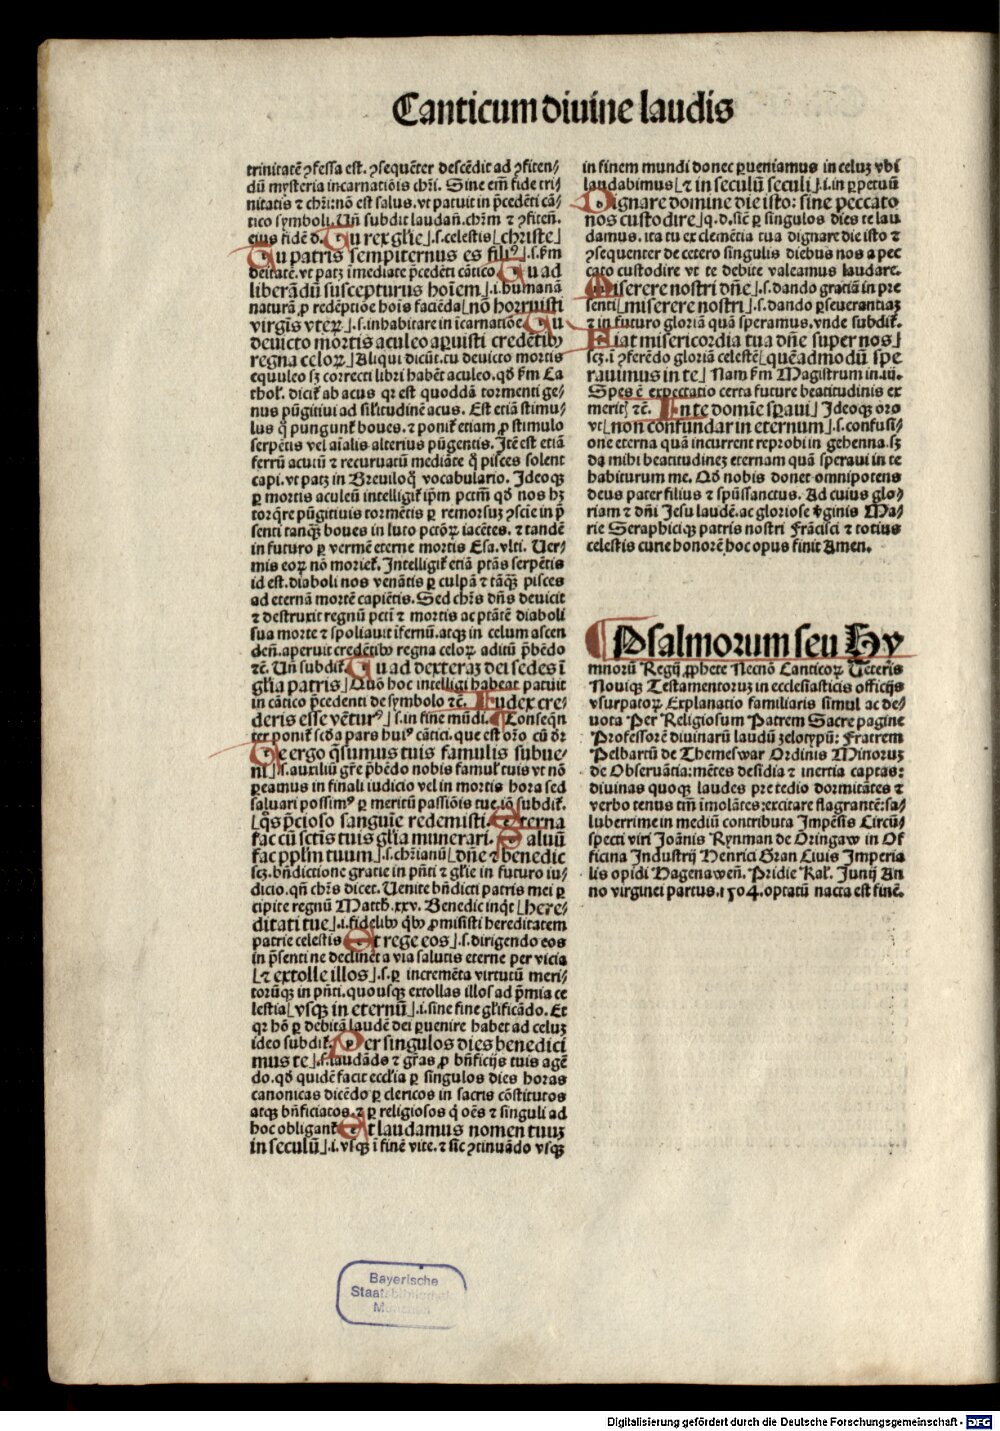 Canticum divine laudis
trinitatē ꝯfessa est. ꝯsequēter descēdit ad ꝯfiten⸗
dū mysteria incarnatiōis chr̄i. Sine em̄ fide tri⸗
nitatis ⁊ chr̄i: nō est salus. vt patuit in p̄cedēti cā⸗
tico symboli. Un̄ subdit laudan̄. chr̄m ⁊ ꝯfiten̄.
eius fidē d. Tu rex gl̄ie⌋.s. celestis⌊christe⌋
Tu patris sempiternus es filiꝰ⌋.s. ẜm
deitatē. vt patꝫ īmediate p̄cedēti cātico. Tu ad
liberādū suscepturus hoīem⌋.i. humanā
naturā ꝓ redēptiōe hoīs faciēda⌊nō horruisti
virgīs vteꝝ⌋.s. inhabitare in īcarnatiōe. Tu
devicto mortis aculeo aꝑuisti credētibꝰ
regna celoꝝ⌋Aliqui dicūt. tu devicto mortis
equuleo sꝫ correcti libri habēt aculeo. qđ ẜm Ca
thoł. dicit᷑ ab acus qr est quoddā tormenti ge⸗
nus pūgitivi ad sil̄itudinē acus. Est etiā stimu⸗
lus q̄ pungunt᷑ boues. ⁊ ponit᷑ etiam ꝓ stimulo
serpētis vel aīalis alterius pūgentis. Itē est etiā
ferrū acutū ⁊ recuruatū mediāte q̄ pisces solent
capi. vt patꝫ in Breuiloq̄ vocabulario. Ideoqꝫ
ꝑ mortis aculeū intelligit᷑ ip̄m pctm̄ qđ nos hꝫ
torq̄re pūgitiuis tormētis ꝑ remorsuꝫ ꝯscie in p̄
senti tanqꝫ boues in luto pctōꝝ iacētes. ⁊ tandē
in futuro ꝑ vermē eterne mortis Esa. vlti. Uer⸗
mis eoꝝ nō moriet᷑. Intelligit᷑ etiā ptās serpētis
id est. diaboli nos venātis ꝑ culpā ⁊ tāqꝫ pisces
ad eternā mortē capiētis. Sed chr̄s dn̄s deuicit
⁊ destruxit regnū pcti ⁊ mortis ac ptātē diaboli
sua morte ⁊ spoliauit īfernū. atqꝫ in celum ascen
den̄. aperuit credētibꝰ regna celoꝝ aditū p̄bēdo
⁊c̄. Un̄ subdit᷑. Tu ad dexteraꝫ dei sedes ī
gl̄ia patris⌋Quō hoc intelligi habeat patuit
in cātico p̄cedenti de symbolo ⁊c̄. Iudex cre⸗
deris esse vētur⁹⌋.s. in fine mūdi. Conseqn̄
ter ponit᷑ scđa pars huiꝰ cātici. que est oro cū dr̄
Te ergo q̄sumus tuis famulis subue⸗
ni⌋.s. auxiliū gr̄e p̄bēdo nobis famuł tuis vt nō
ꝑeamus in finali iudicio vel in mortis hora sed
saluari possimꝰ ꝑ meritū passiōis tue. iō subdit᷑.
⌊qꝫs p̄cioso sanguīe redemisti. Eterna
fac cū scr̄is tuis gl̄ia munerari. Saluū
fac ppl̄m tuum⌋.s. chr̄ianū⌊dn̄e ⁊ benedic
scꝫ. bn̄dictione gratie in pn̄ti ⁊ gl̄ie in futuro iu⸗
dicio. qn̄ chr̄s dicet. Uenite bn̄dicti patris mei ꝑ
cipite regnū Matth. xxv. Benedic inq̄t⌊here⸗
ditati tue⌋.i. fidelibꝰ qꝫbꝰ ꝓmisisti hereditatem
patrie celestis Et rege eos⌋.s. dirigendo eos
in p̄senti ne declinēt a via salutis eterne per vicia
⌊⁊ extolle illos⌋.s. ꝑ incremēta virtutū meri⸗
torūqꝫ in pn̄ti. quousqꝫ extollas illos ad p̄mia ce
lestia⌊vsqꝫ in eternū⌋.i. sine fine gl̄ificādo. Et
qr hō ꝑ debitā laudē dei ꝑuenire habet ad celuꝫ
ideo subdit᷑. Per singulos dies benedici
mus te⌋.s. laudādo ⁊ gr̄as ꝓ bn̄ficijs tuis agē
do. qđ quidē facit eccl̄ia ꝑ singulos dies horas
canonicas dicēdo ꝑ clericos in sacris cōstitutos
atqꝫ bn̄ficiatos. ⁊ ꝑ religiosos q̄ oēs ⁊ singuli ad
hoc obligant᷑. Et laudamus nomen tuuꝫ
in seculū⌋.i. vsqꝫ ī finē vite. ⁊ sic ꝯtinuādo vsqꝫ
in finem mundi donec ꝑueniamus in celuꝫ vbi
laudabimus⌊⁊ in seculū seculi⌋.i. in ꝑpetuū
Dignare domine die isto: sine peccato
nos custodire⌋q. d. sic̄ ꝑ singulos dies te lau
damus. ita tu ex clemētia tua dignare die isto ⁊
ꝯsequenter de cetero singulis diebus nos a pec
cato custodire vt te debite valeamus laudare.
Miserere nostri dn̄e⌋.s. dando gratiā in pre
senti⌊miserere nostri⌋.s. dando ꝑseuerantiaꝫ
⁊ in futuro gloriā quā speramus. vnde subdit᷑.
Fiat misericordia tua dn̄e super nos⌋
scꝫ. ī ꝯferēdo gloriā celestē⌊quēadmodū spe
rauimus in te⌋Nam ẜm Magistrum in .iij.
Spes ē expectatio certa future beatitudinis ex
meritꝭ ⁊c̄. In te domīe sꝑaui⌋Ideoqꝫ oro
vt⌊non confundar in eternum⌋.s. confusi⸗
one eterna quā incurrent reprobi in gehenna. sꝫ
da mihi beatitudineꝫ eternam quā speraui in te
habiturum me. Qđ nobis donet omnipotens
deus pater filius ⁊ sp̄ussanctus. Ad cuius glo⸗
riam ⁊ dn̄i Jesu laudē. ac gloriose v̓ginis Ma⸗
rie Seraphiciqꝫ patris nostri Frācisci ⁊ totius
celestis curie honorē hoc opus finit Amen.
¶ Psalmorum seu Hy
mnorū Regij ꝓphete Necnō Canticoꝝ Ueteris
Nouiqꝫ Testamentoruꝫ in ecclesiasticis officijs
vsurpatoꝝ Explanatio familiaris simul ac de⸗
uota Per Religiosum Patrem Sacre pagine
Professorē diuinarū laudū ꝫelotypū: Fratrem
Pelbartū de Themeswar Ordinis Minoruꝫ
de Obseruātia: mētes desidia ⁊ inertia captas:
diuinas quoqꝫ laudes pre tedio dormitātes ⁊
verbo tenus tm̄ īmolātes: excitare flagrantē: sa⸗
luberrime in mediū contributa Impēsis Circū⸗
specti viri Joānis Rynman de Oringaw in Of
ficina Industrij Henrici Gran Ciuis Imperia
lis opidi Hagenawen̄. Pridie Kał. Junij An
no virginei partus. 1504. optatū nacta est finē.
Bayerische
Staatsbibliothek
München
Digitalisierung gefördert durch die Deutsche Forschungsgemeinschaft - DFG